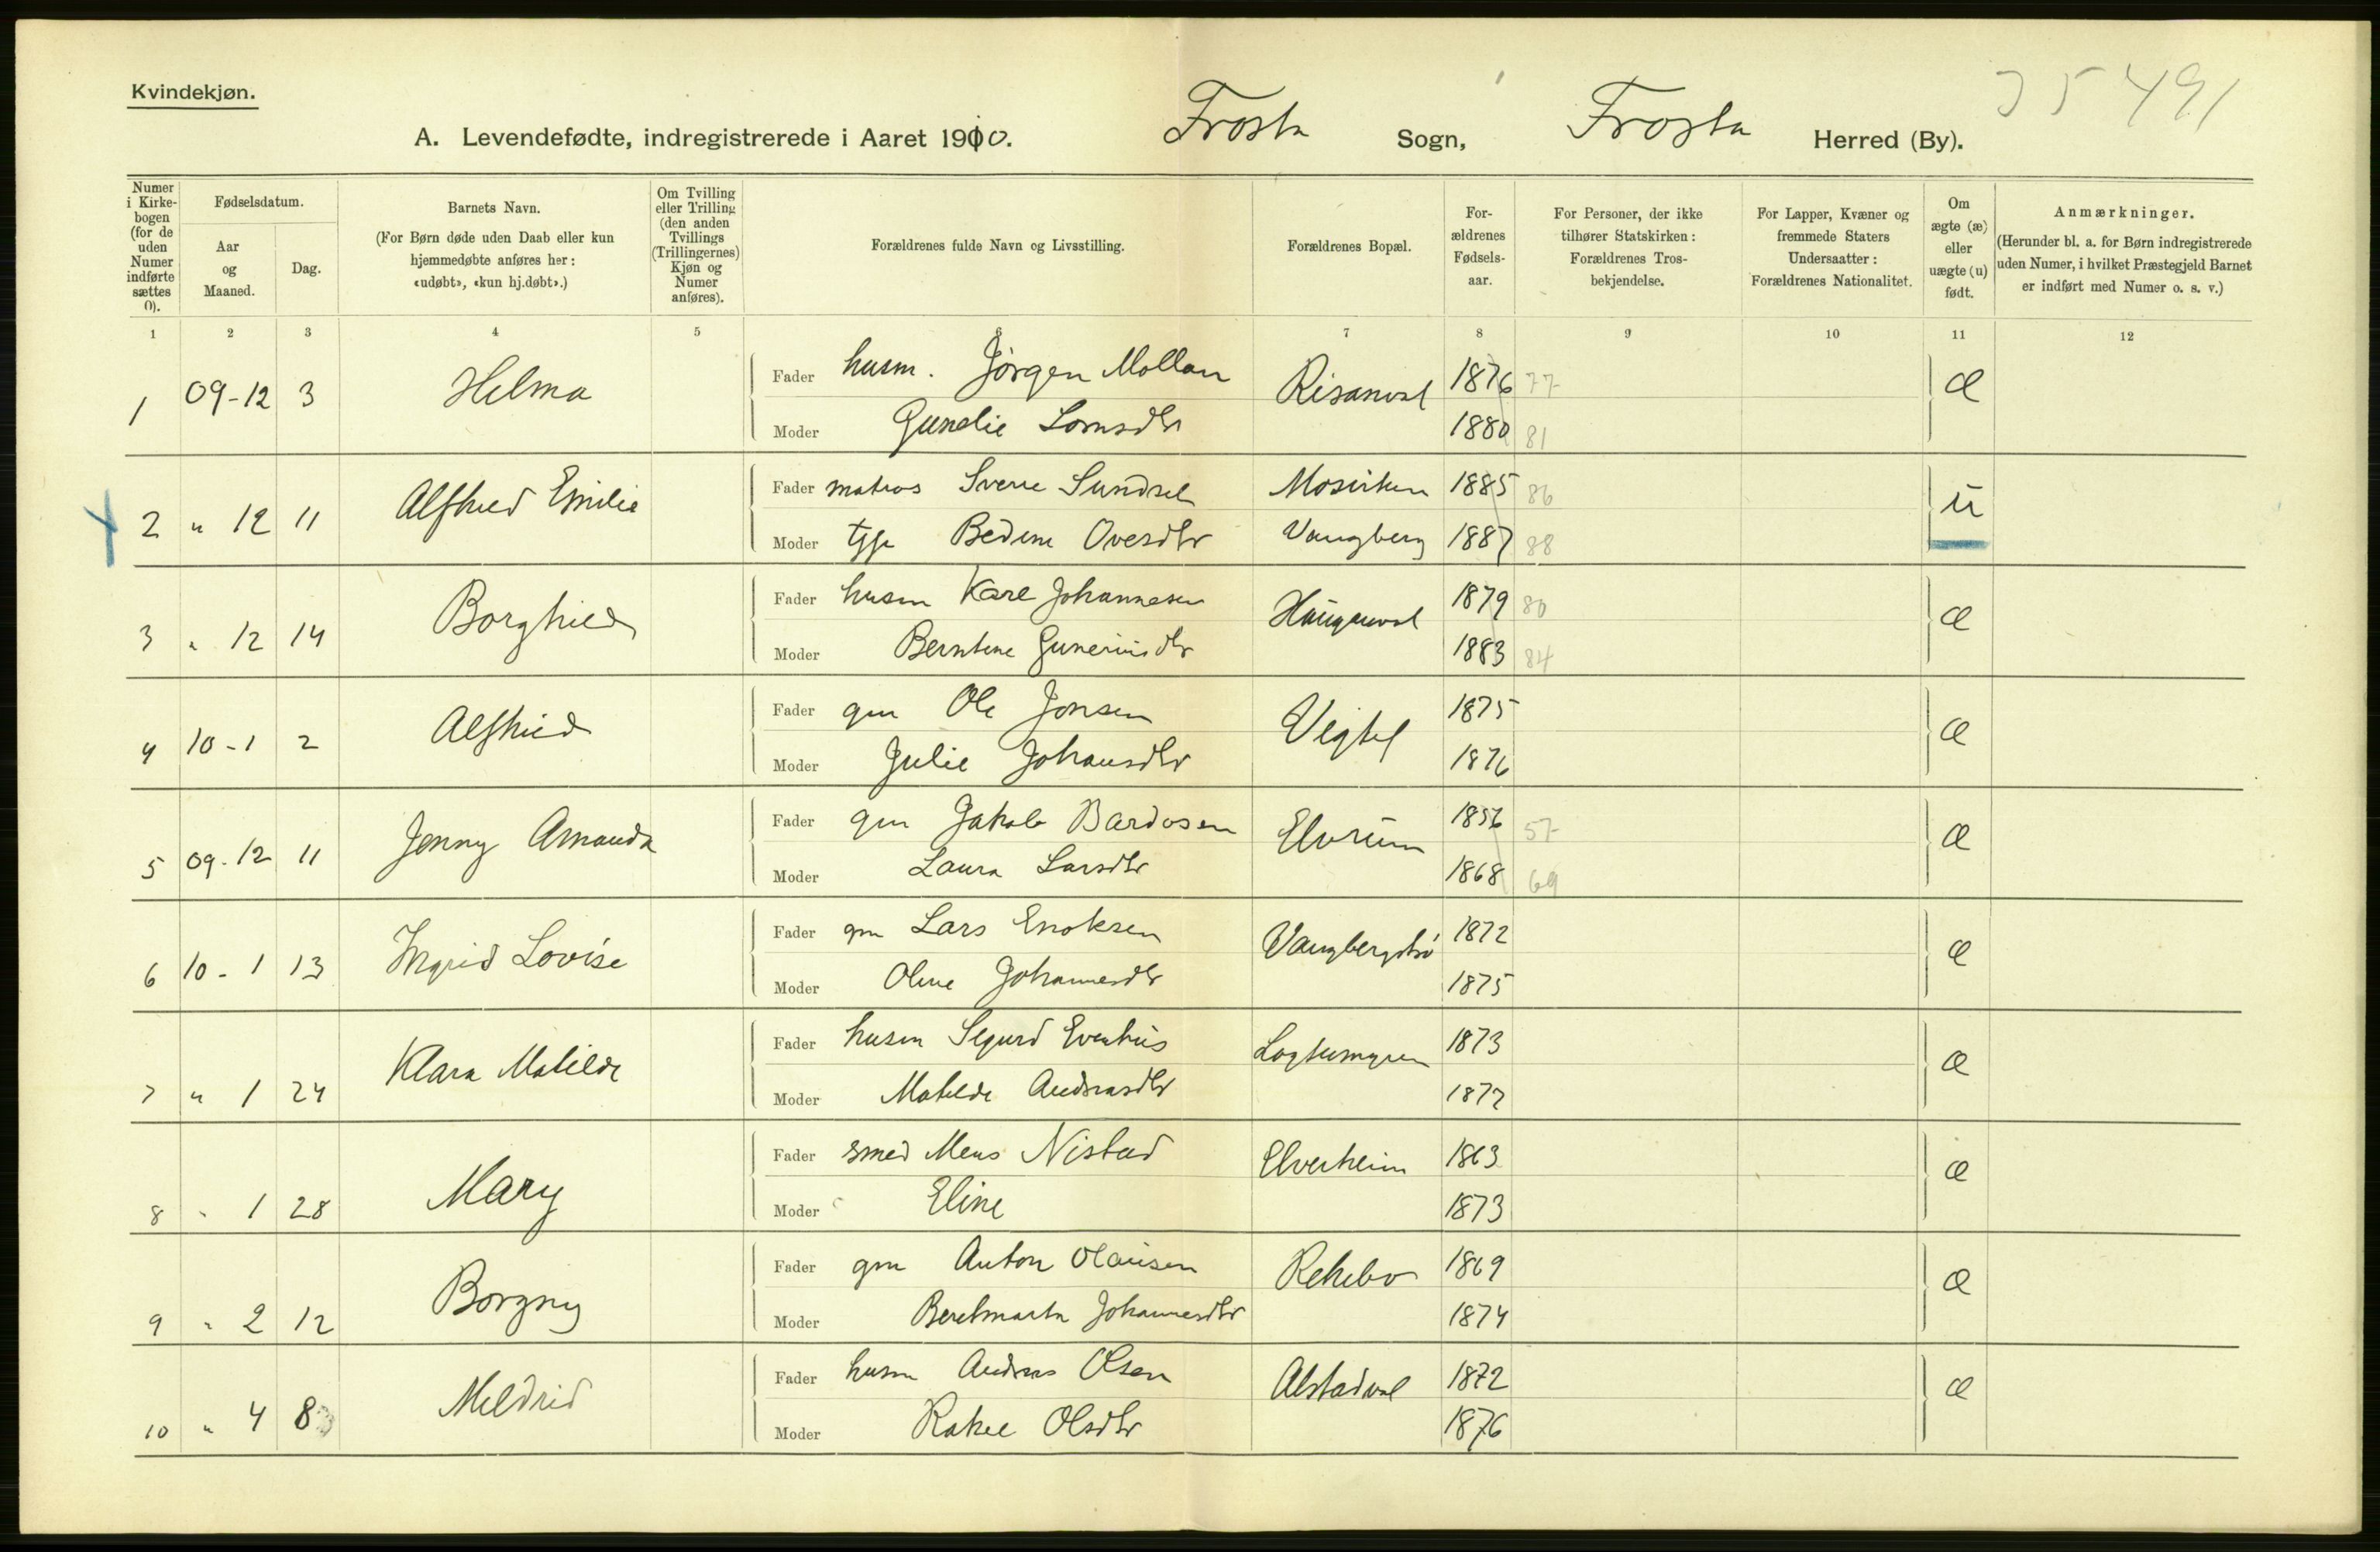 Kvindekjøn.
35 491
A. Levendefødte, indregistrerede i Aaret 1910. Frosta Sogn, Frosta Herred (By).
Numer i Kirkebogen (for de uden Numer indførte sættes 0).
Fødselsdatum.
Aar og Maaned.
Dag.
Barnets Navn.
(For Børn døde uden Daab eller kun hjemmedøbte anføres her: «udøbt», «kun hj.døbt».)
Om Tvilling eller Trilling (den anden Tvillings (Trillingernes) Kjøn og Numer anføres).
Forældrenes fulde Navn og Livsstilling.
Forældrenes Bopæl.
Forældrenes Fødselsaar.
For Personer, der ikke tilhører Statskirken: Forældrenes Trosbekjendelse.
For Lapper, Kvæner og fremmede Staters Undersaatter: Forældrenes Nationalitet.
Om ægte (æ) eller uægte (u) født.
Anmærkninger.
(Herunder bl. a. for Børn indregistrerede uden Numer, i hvilket Præstegjeld Barnet er indført med Numer o. s. v.)
1 2 3 4 5 6 7 8 9 10 11 12
1 09-12 3 Helma Fader husm. Jørgen Mollan Risanval 1876 77 æ
Moder Gunelie Lornsdtr 1880 81
2 " 12 11 Alfhild Emilie Fader matros Sverre Sundsel Mosviken 1885 86 u
Moder tjge Bedine Ovesdtr Vangberg 1887 88
3 " 12 14 Borghild Fader husm Karl Johannesen Hauganval 1879 80 æ
Moder Berntine Guneriusdtr 1883 84
4 10-1 2 Alfhild Fader gm Ole Jonsen Vigtil 1875 æ
Moder Julie Johansdtr 1876
5 09-12 11 Jenny Amanda Fader gm Jakob Bardosen Elvrum 1856 57 æ
Moder Laura Larsdtr 1868 69
6 10-1 13 Ingrid Lovise Fader gm Lars Enoksen 1872 æ
Moder Oline Johannesdtr 1875
7 " 1 24 Klara Matilde Fader husm Sigurd Evenhus Logtumyren 1873 æ
Moder Matilde Andreasdtr 1877
8 " 1 28 Mary Fader smed Mens Nistad Elverheim 1863 æ
Moder Eline 1873
9 " 2 12 Borgny Fader gm Anton Olausen Rekebo 1869 æ
Moder Beretmarta Johannesdtr 1874
10 " 4 8 Mildrid Fader husm Andreas Olsen Alstadval 1872 æ
Moder Rakel Olsdtr 1876